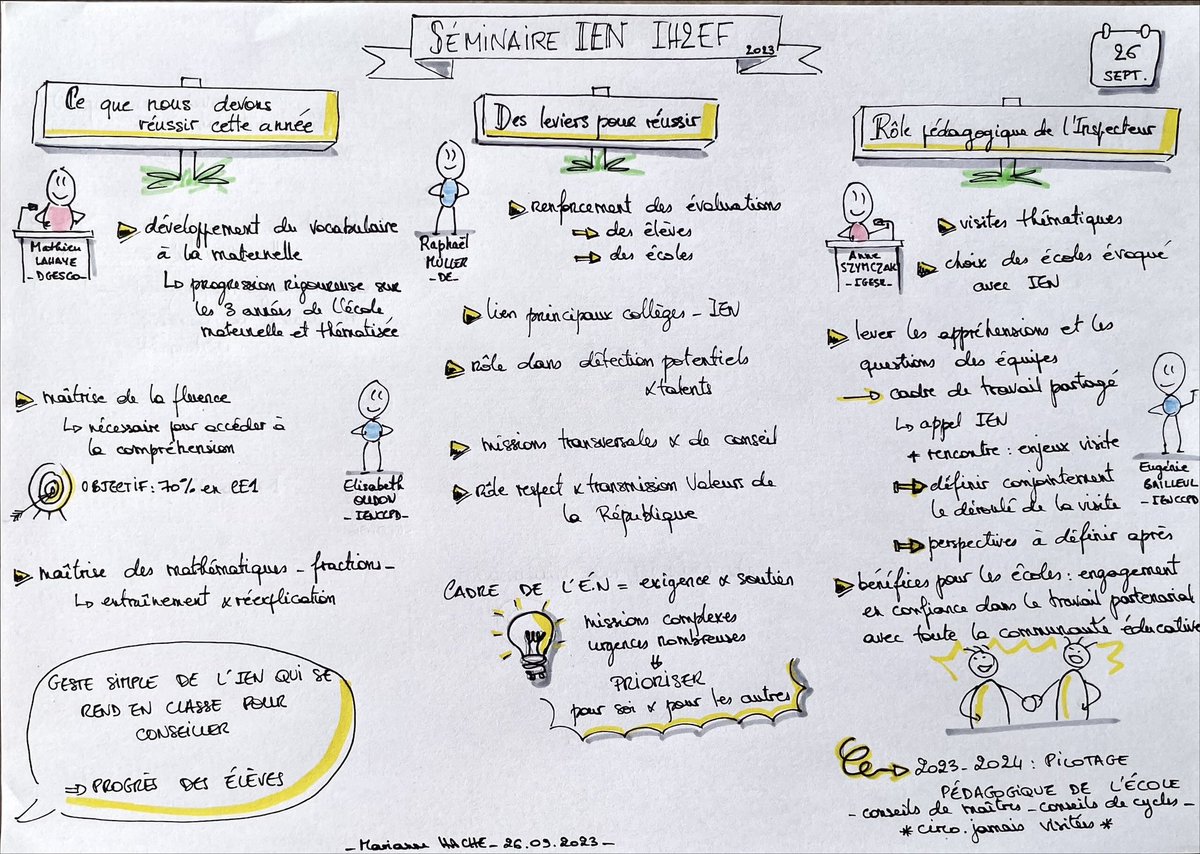 SÉMINAIRE IEN IH2EF 2023
26
SEPT.
Ce que nous devons
réussir cette année
Mathieu
LAHAYE
-DGESCO-
développement du vocabulaire
à la maternelle
↳ progression rigoureuse sur
les 3 années de l'école
maternelle et thématisée
maîtrise de la fluence
↳ nécessaire pour accéder à
la compréhension
OBJECTIF : 70% en CE1
Elisabeth
OUDON
-IENCCPD-
maîtrise des mathématiques - fractions -
↳ entraînement × réexplication
GESTE SIMPLE DE L'IEN QUI SE
REND EN CLASSE POUR
CONSEILLER
⇒ PROGRÈS DES ÉLÈVES
Des leviers pour réussir
Raphaël
MULLER
-DE-
renforcement des évaluations
⇒ des élèves
⇒ des écoles
lien principaux collèges - IEN
rôle dans détection potentiels
× talents
missions transversales × de conseil
Rôle respect × transmission Valeurs de
la République
CADRE DE L'ÉN = exigence × soutien
missions complexes
urgences nombreuses
⇓
PRIORISER
pour soi × pour les autres
Rôle pédagogique de l'Inspecteur
Anne
SZYMCZAK
-IGESR-
visites thématiques
choix des écoles évoqué
avec IEN
lever les appréhensions et les
questions des équipes
→ cadre de travail partagé
↳ appel IEN
+ rencontre : enjeux visite
⇒ définir conjointement
le déroulé de la visite
⇒ perspectives à définir après
Eugénie
BAILLEUL
-IENCCPD-
bénéfices pour les écoles : engagement
en confiance dans le travail partenarial
avec toute la communauté éducative
→ 2023-2024 : PILOTAGE
PÉDAGOGIQUE DE L'ÉCOLE
- conseils de maîtres - conseils de cycles -
* circo. jamais visités *
- Marianne HACHE - 26.09.2023 -